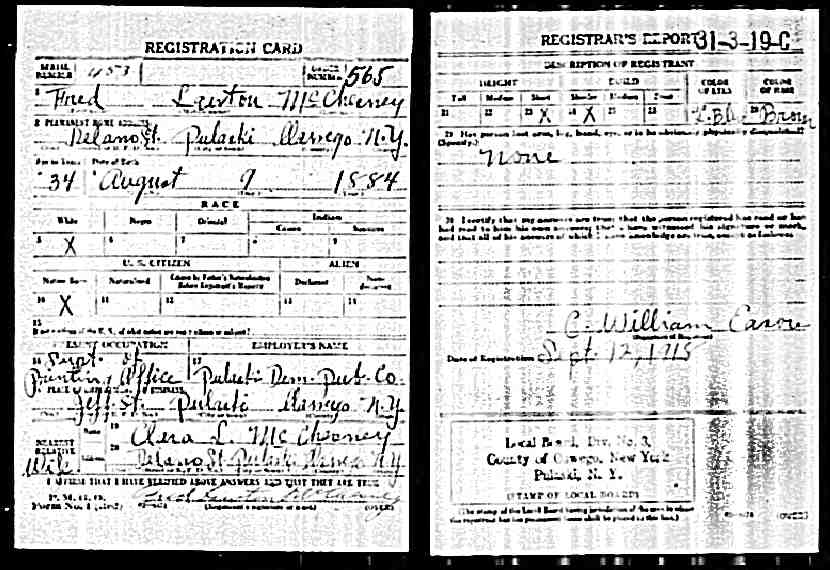 REGISTRATION CARD
SERIAL NUMBER 1153
ORDER NUMBER 565
1 Fred McChesney
2 PERMANENT HOME ADDRESS
Delano St. Pulaski Oswego N.Y.
Age in Years Date of Birth
34 August 9 1884
RACE
White Negro Oriental Indian
Citizen Noncitizen
5 X 6 7 8 9
U. S. CITIZEN ALIEN
Native Born Naturalized Citizen by Father's Naturalization Before Registrant's Majority Declarant Non-declarant
10 X 11 12 13 14
15
If not a citizen of the U. S., of what nation are you a citizen or subject?
PRESENT OCCUPATION EMPLOYER'S NAME
16 Supt. of 17
Printing Office Pulaski Dem. Pub. Co.
PLACE OF EMPLOYMENT
Jeff. St. Pulaski Oswego N.Y.
NEAREST RELATIVE Name 19 Clara L. McChesney
Wife Address 20 Delano St. Pulaski Oswego N.Y.
I AFFIRM THAT I HAVE VERIFIED ABOVE ANSWERS AND THAT THEY ARE TRUE
P. M. G. O.
Form No. 1 (Red) (Registrant's signature or mark) (OVER)
REGISTRAR'S REPORT 31-3-19-C
DESCRIPTION OF REGISTRANT
HEIGHT BUILD COLOR OF EYES COLOR OF HAIR
Tall Medium Short Slender Medium Stout
21 22 23 X 24 X 25 26 Brown
29 Has person lost arm, leg, hand, eye, or is he obviously physically disqualified?
(Specify.)
None
30 I certify that my answers are true; that the person registered has read or has
had read to him his own answers; that I have witnessed his signature or mark,
and that all of his answers of which I have knowledge are true, except as follows:
C. William
(Signature of Registrar)
Date of Registration Sept. 12, 1918
Local Board, Div. No. 3,
County of Oswego, New York
Pulaski, N. Y.
(STAMP OF LOCAL BOARD)
(The stamp of the Local Board having jurisdiction of the area in which
the registrant has his permanent home shall be placed in this box.)
(OVER)